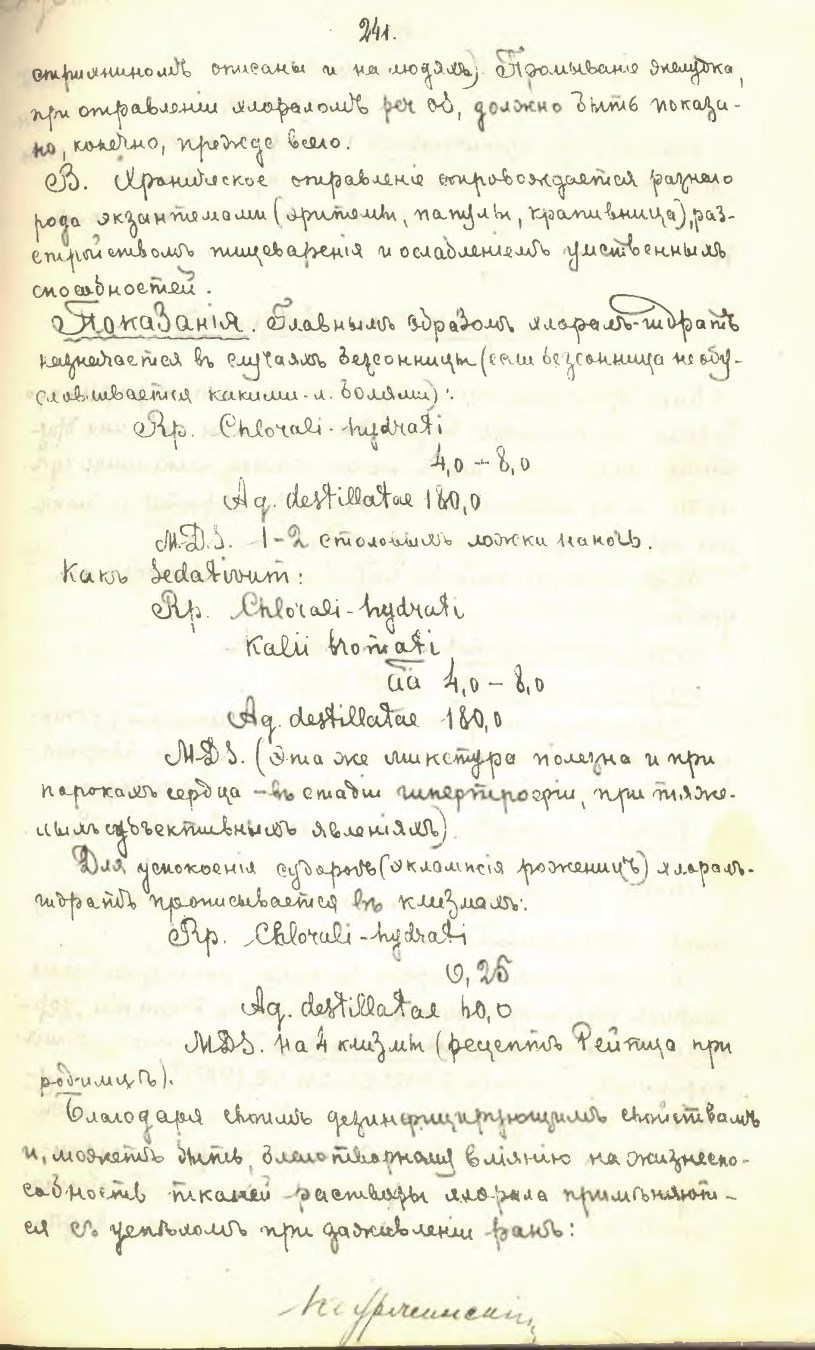 241.
стрихниномъ описаны и на людяхъ). Промываніе желудка,
при отравленіи хлораломъ per os, должно быть показа-
но, конечно, прежде всего.
В. Хроническое отравленіе сопровождается разнаго
рода экзантемами (эритемы, папулы, крапивница), раз-
стройствомъ пищеваренія и ослабленіемъ умственныхъ
способностей.
Показанія. Главнымъ образомъ хлоралъ-гидратъ
назначается въ случаяхъ безсонницы (если безсонница не обу-
славливается какими-л. болями):
Rp. Chlorali-hydrati
4,0 – 8,0
Aq. destillatae 180,0
M.D.S. 1-2 столовыхъ ложки на ночь.
Какъ Sedativum:
Rp. Chlorali-hydrati
Kalii bromati
āā 4,0 – 8,0
Aq. destillatae 180,0
M.D.S. (Эта же микстура полезна и при
порокахъ сердца – въ стадіи гипертрофіи, при тяже-
лыхъ субъективныхъ явленіяхъ)
Для успокоенія судорогъ (эклампсія роженицъ) хлоралъ-
гидратъ прописывается въ клизмахъ:
Rp. Chlorali-hydrati
0,25
Aq. destillatae 50,0
MDS. на 4 клизмы (рецептъ при
родимцѣ).
Благодаря своимъ дезинфицирующимъ свойствамъ
и, можетъ быть, благотворному вліянію на жизнеспо-
собность тканей растворы хлорала примѣняют-
ся съ успѣхомъ при заживленіи ранъ: